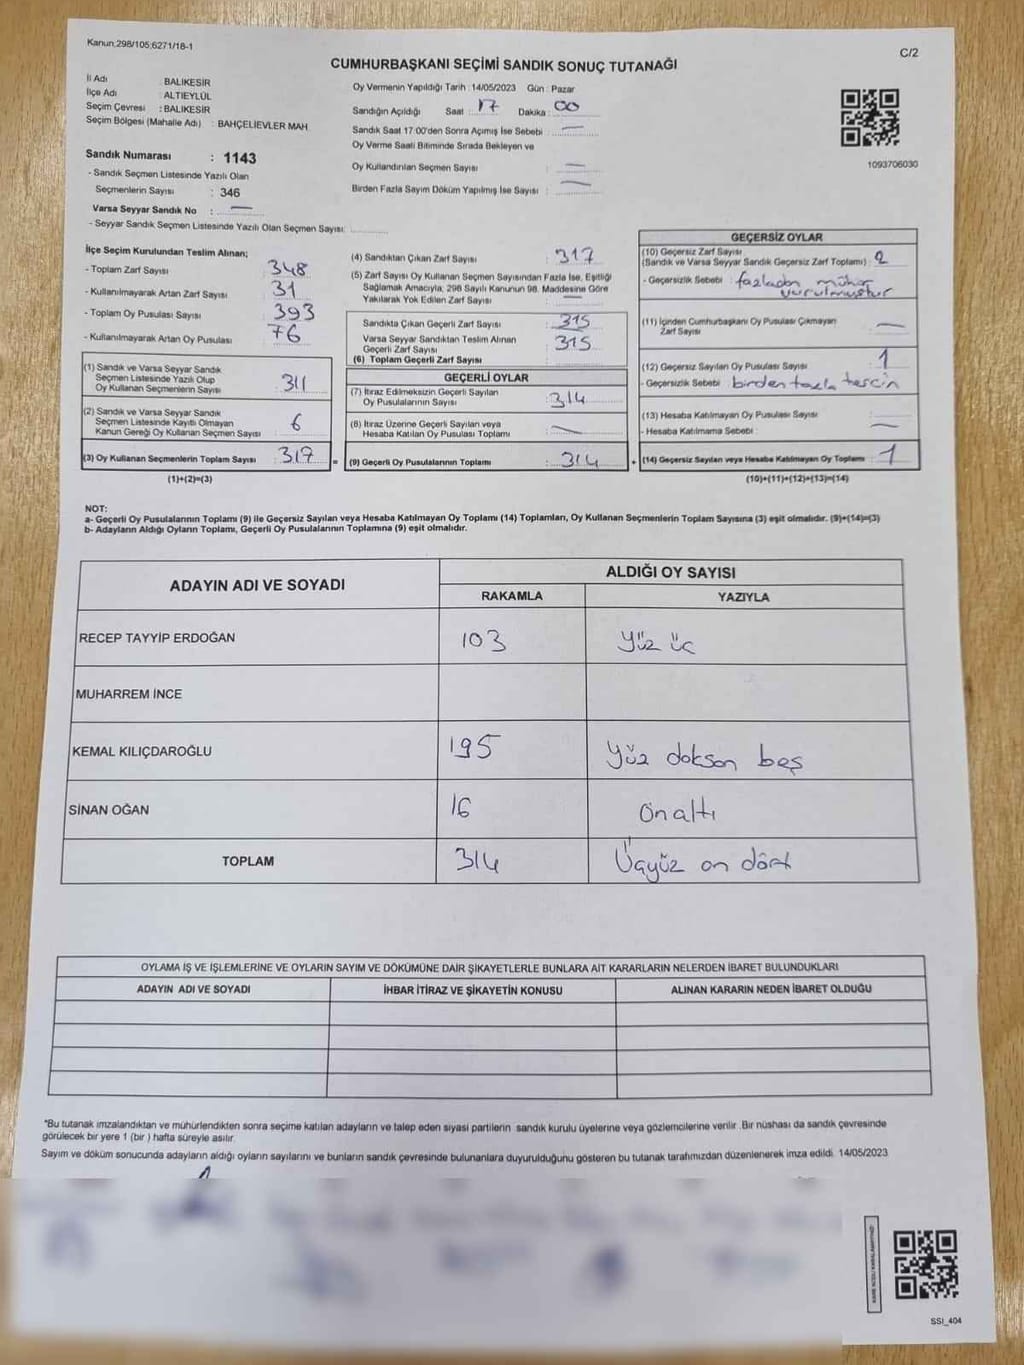 Kanun;298/105;6271/18-1
C/2
CUMHURBAŞKANI SEÇİMİ SANDIK SONUÇ TUTANAĞI
İl Adı : BALIKESİR
İlçe Adı : ALTIEYLÜL
Seçim Çevresi : BALIKESİR
Seçim Bölgesi (Mahalle Adı) : BAHÇELİEVLER MAH
Sandık Numarası : 1143
- Sandık Seçmen Listesinde Yazılı Olan
Seçmenlerin Sayısı : 346
Varsa Seyyar Sandık No : —
- Seyyar Sandık Seçmen Listesinde Yazılı Olan Seçmen Sayısı:
Oy Vermenin Yapıldığı Tarih : 14/05/2023 Gün : Pazar
Sandığın Açıldığı Saat : 17 Dakika : 00
Sandık Saat 17:00'den Sonra Açımış İse Sebebi : —
Oy Verme Saati Bitiminde Sırada Bekleyen ve
Oy Kullandırılan Seçmen Sayısı : —
Birden Fazla Sayım Döküm Yapılmış İse Sayısı : —
1093706030
İlçe Seçim Kurulundan Teslim Alınan;
- Toplam Zarf Sayısı : 348
- Kullanılmayarak Artan Zarf Sayısı : 31
- Toplam Oy Pusulası Sayısı : 393
- Kullanılmayarak Artan Oy Pusulası : 76
(1) Sandık ve Varsa Seyyar Sandık
Seçmen Listesinde Yazılı Olup
Oy Kullanan Seçmenlerin Sayısı : 311
(2) Sandık ve Varsa Seyyar Sandık
Seçmen Listesinde Kayıtlı Olmayan
Kanun Gereği Oy Kullanan Seçmen Sayısı : 6
(3) Oy Kullanan Seçmenlerin Toplam Sayısı : 317
(1)+(2)=(3)
(4) Sandıktan Çıkan Zarf Sayısı : 317
(5) Zarf Sayısı Oy Kullanan Seçmen Sayısından Fazla İse, Eşitliği
Sağlamak Amacıyla; 298 Sayılı Kanunun 98. Maddesine Göre
Yakılarak Yok Edilen Zarf Sayısı : —
Sandıkta Çıkan Geçerli Zarf Sayısı : 315
Varsa Seyyar Sandıktan Teslim Alınan : 315
Geçerli Zarf Sayısı
(6) Toplam Geçerli Zarf Sayısı
GEÇERLİ OYLAR
(7) İtiraz Edilmeksizin Geçerli Sayılan
Oy Pusulalarının Sayısı : 314
(8) İtiraz Üzerine Geçerli Sayılan veya
Hesaba Katılan Oy Pusulası Toplamı : —
= (9) Geçerli Oy Pusulalarının Toplamı : 314
GEÇERSİZ OYLAR
(10) Geçersiz Zarf Sayısı
(Sandık ve Varsa Seyyar Sandık Geçersiz Zarf Toplamı) : 2
- Geçersizlik Sebebi : fazladan mühür
vurulmuştur
(11) İçinden Cumhurbaşkanı Oy Pusulası Çıkmayan
Zarf Sayısı : —
(12) Geçersiz Sayılan Oy Pusulası Sayısı : 1
- Geçersizlik Sebebi : birden fazla tercih
(13) Hesaba Katılmayan Oy Pusulası Sayısı :
- Hesaba Katılmama Sebebi : —
+ (14) Geçersiz Sayılan veya Hesaba Katılmayan Oy Toplamı : 1
(10)+(11)+(12)+(13)=(14)
NOT:
a- Geçerli Oy Pusulalarının Toplamı (9) ile Geçersiz Sayılan veya Hesaba Katılmayan Oy Toplamı (14) Toplamları, Oy Kullanan Seçmenlerin Toplam Sayısına (3) eşit olmalıdır. (9)+(14)=(3)
b- Adayların Aldığı Oyların Toplamı, Geçerli Oy Pusulalarının Toplamına (9) eşit olmalıdır.
ADAYIN ADI VE SOYADI ALDIĞI OY SAYISI
RAKAMLA YAZIYLA
RECEP TAYYİP ERDOĞAN 103 Yüz üç
MUHARREM İNCE
KEMAL KILIÇDAROĞLU 195 Yüz doksan beş
SİNAN OĞAN 16 Onaltı
TOPLAM 314 Üçyüz on dört
OYLAMA İŞ VE İŞLEMLERİNE VE OYLARIN SAYIM VE DÖKÜMÜNE DAİR ŞİKAYETLERLE BUNLARA AİT KARARLARIN NELERDEN İBARET BULUNDUKLARI
ADAYIN ADI VE SOYADI İHBAR İTİRAZ VE ŞİKAYETİN KONUSU ALINAN KARARIN NEDEN İBARET OLDUĞU
*Bu tutanak imzalandıktan ve mühürlendikten sonra seçime katılan adayların ve talep eden siyasi partilerin sandık kurulu üyelerine veya gözlemcilerine verilir .Bir nüshası da sandık çevresinde
görülecek bir yere 1 (bir ) hafta süreyle asılır.
Sayım ve döküm sonucunda adayların aldığı oyların sayılarını ve bunların sandık çevresinde bulunanlara duyurulduğunu gösteren bu tutanak tarafımızdan düzenlenerek imza edildi. 14/05/2023
SSI_404